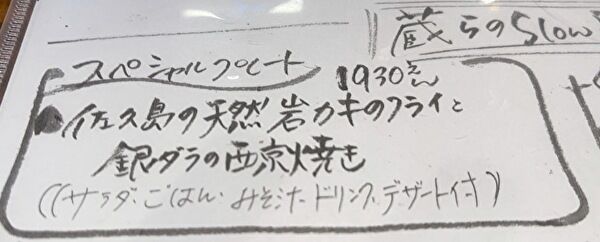 蔵らのSlow
スペシャルプレート 1930えん
●佐久島の天然岩カキのフライと
銀ダラの西京焼き
((サラダ・ごはん・みそ汁・ドリンク・デザート付))